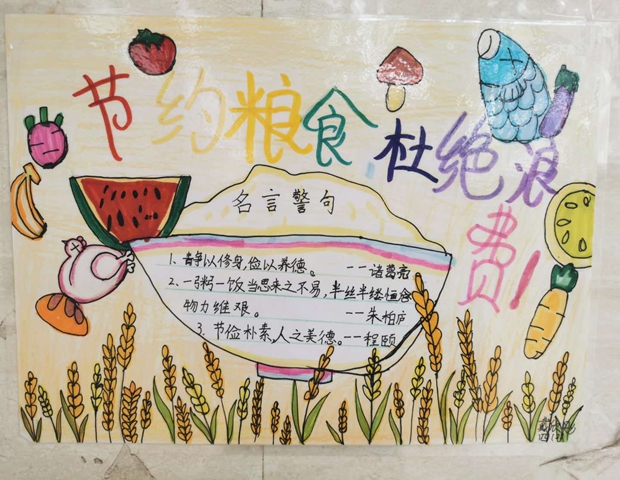 节约粮食,杜绝浪
费!
名言警句
1、静以修身,俭以养德。---诸葛亮
2、一粥一饭当思来之不易,半丝半缕恒念
物力维艰。---朱柏庐
3、节俭朴素,人之美德。--程颐